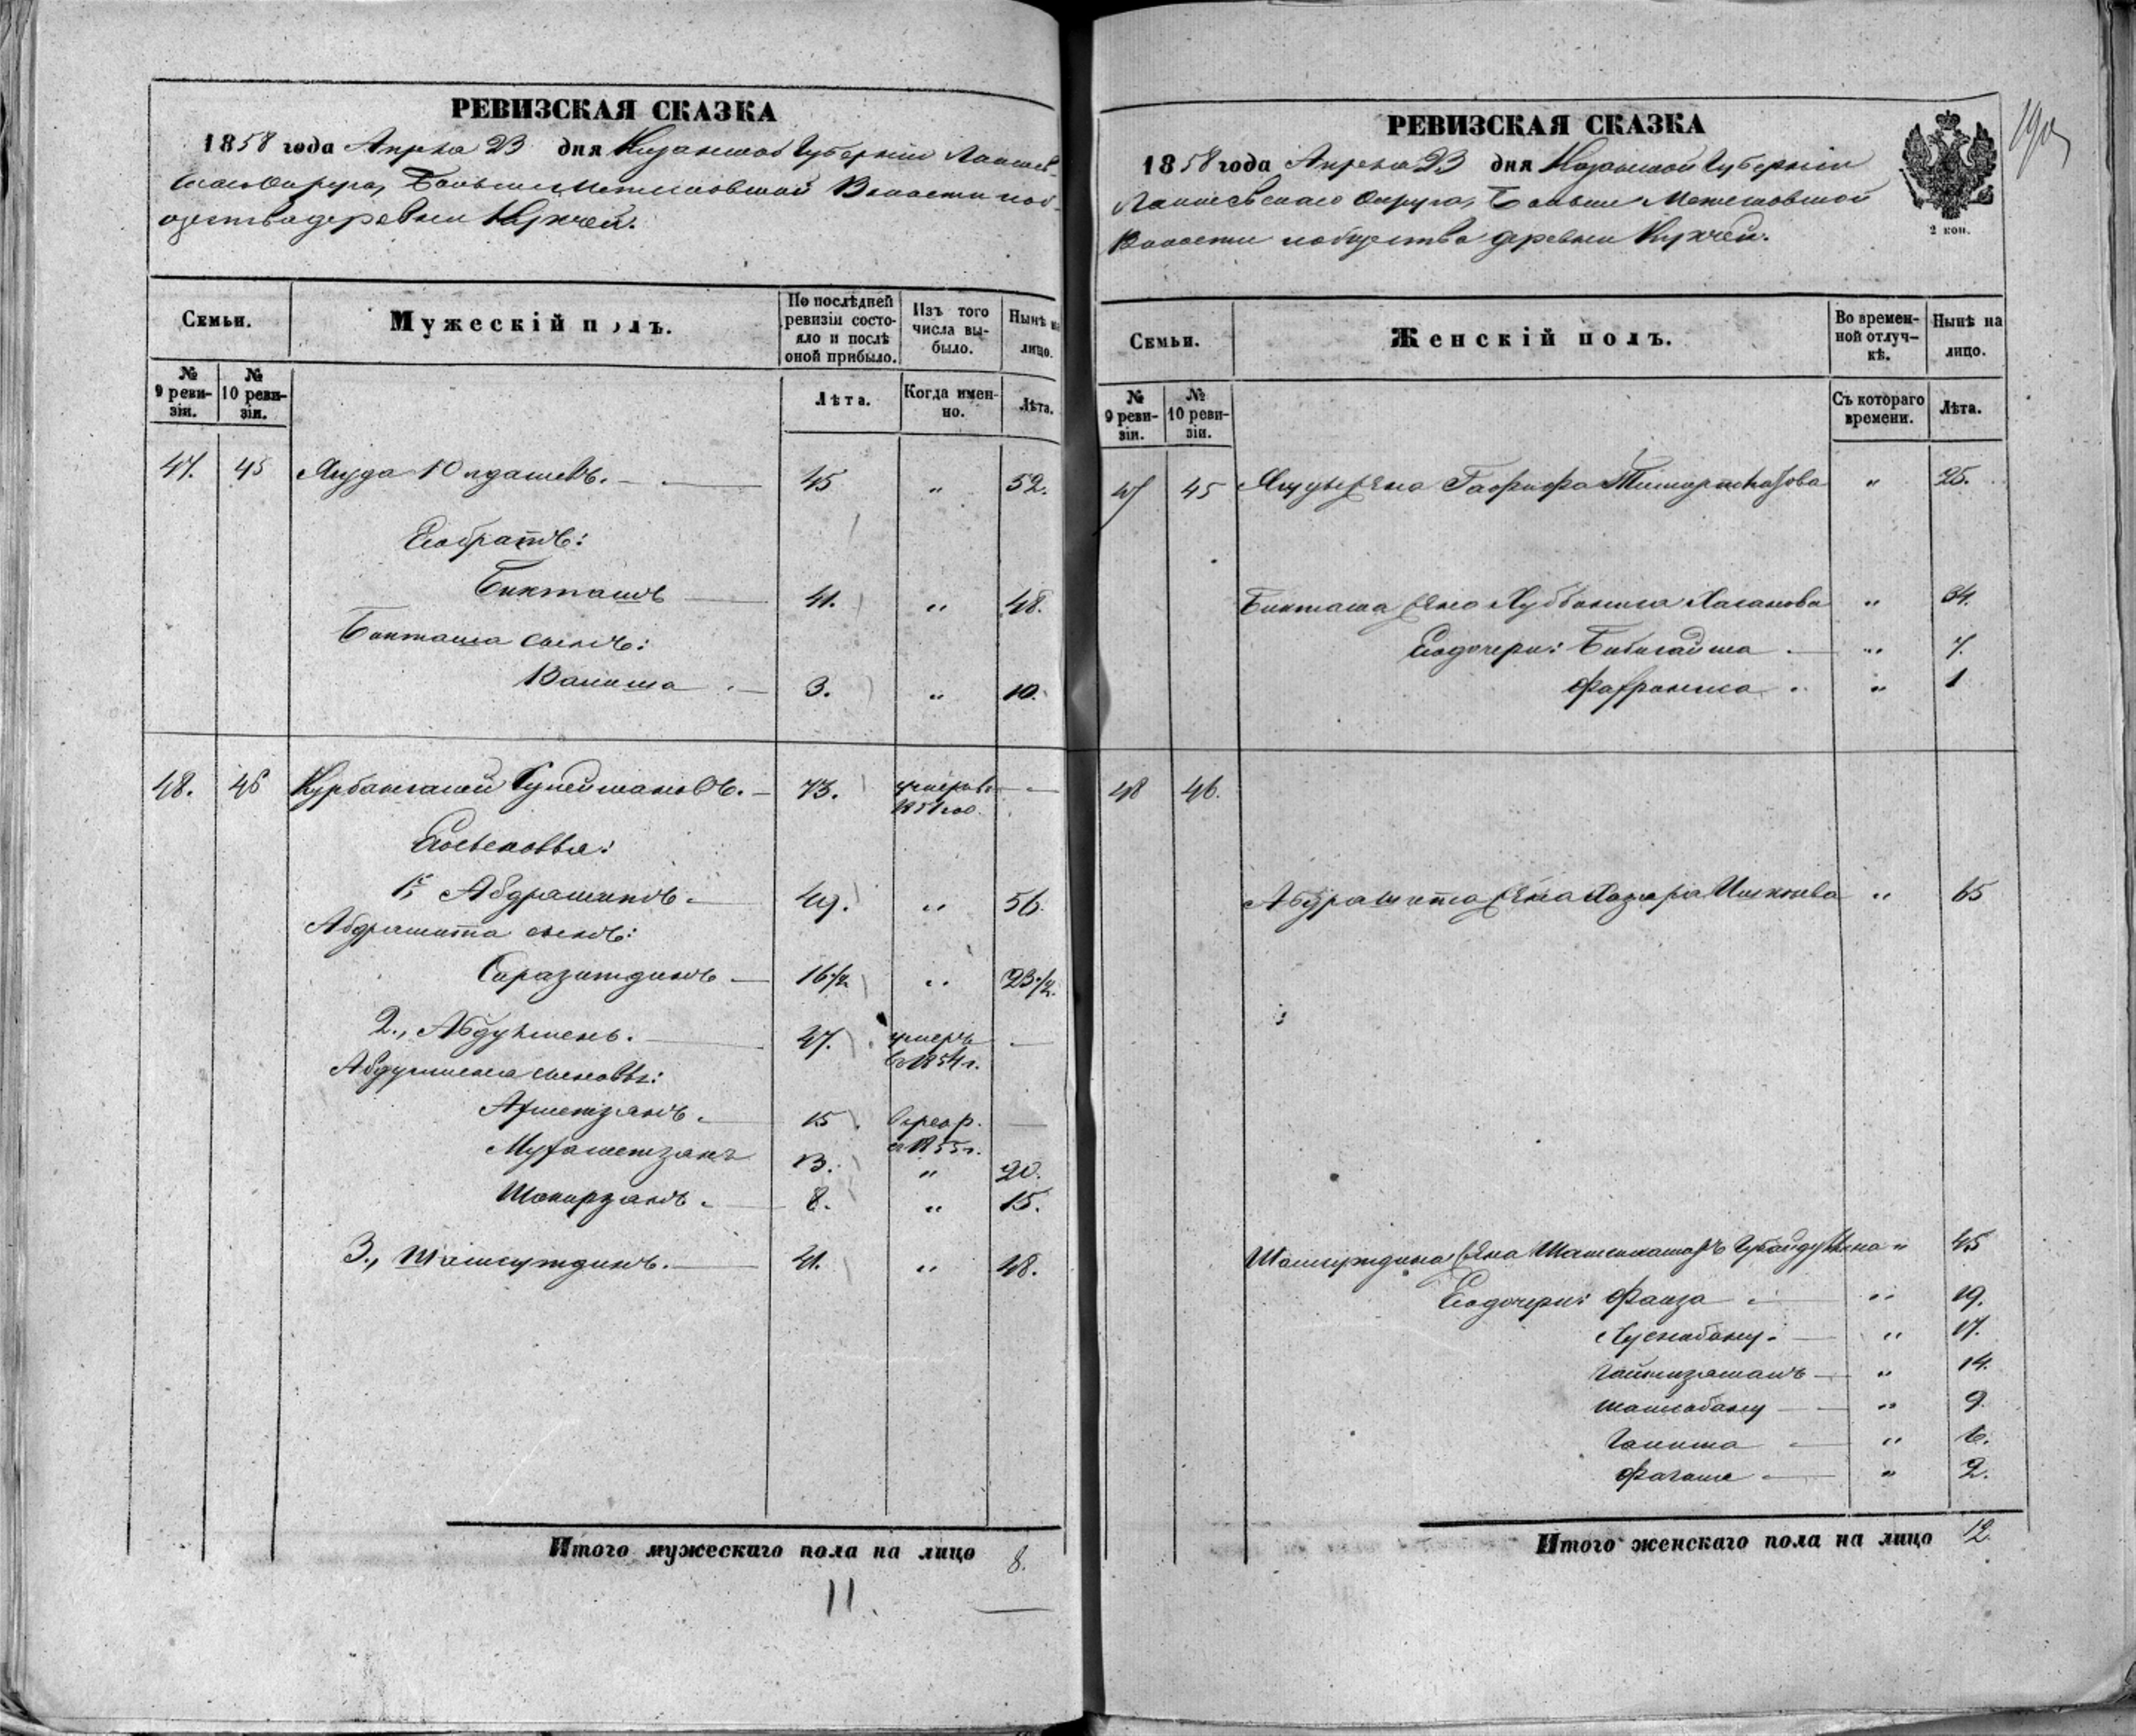 РЕВИЗСКАЯ СКАЗКА
1858 года Апреля 23 дня Казанской Губерніи Лаишев-
скаго Округа, Больше Метесковской Волости
деревни Кужчей.
Семьи.
Мужескій полъ.
По послѣдней ревизіи состояло и послѣ оной прибыло.
Изъ того числа выбыло.
Нынѣ на лицо.
№ 9 ревизіи.
№ 10 ревизіи.
Лѣта.
Когда именно.
Лѣта.
47. 45 Ягуда Юлдашевъ. 45 " 52.
Его братъ:
Бикташъ 41. " 48.
Бикташа сынъ:
Валиша 3. " 10.
48. 46 Курбангалей Сулеймановъ. 73. умеръ въ —
1851 год.
Его сыновья:
1й Абдрашитъ 49. " 56.
Абдрашита сынъ:
Саразитдинъ 16 1/2 " 23 1/2.
2., Абдулменъ. 47. умеръ —
въ 1854 г.
Абдулмена сыновья:
Ахметзянъ 15. —
въ 1855 г.
Мухаметзянъ 13. " 20.
Шакирзянъ 8. " 15.
3., Шамсутдинъ. 41. " 48.
Итого мужескаго пола на лицо 8.
11.
РЕВИЗСКАЯ СКАЗКА
190
1858 года Апреля 23 дня Казанской Губерніи
Лаишевскаго Округа, Больше Метесковской
Волости деревни Кужчей.
2 коп.
Семьи.
Женскій полъ.
Во временной отлучкѣ.
Нынѣ на лицо.
№ 9 ревизіи.
№ 10 ревизіи.
Съ котораго времени.
Лѣта.
47 45 Ягуды жена " 25.
Бикташа жена Хасанова " 34.
Его дочери: Бибигайша " 7.
" 1
48 46.
Абдрашита жена " 65
Шамсутдина жена Губайдуллина " 45
Его дочери: Фаиза " 19.
Хуснабану " 17.
" 14.
Шамсабану " 9.
Галиша " 6.
" 2.
Итого женскаго пола на лицо 12